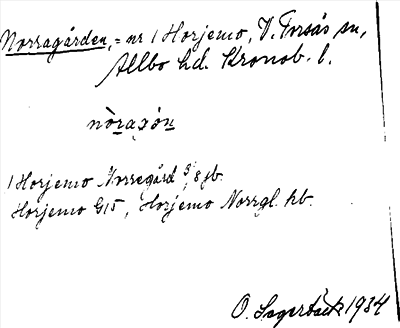 Norragården, = nr 1 Horjemo, V. Torsås sn,
Allbo hd. Kronob. l.
nòraɡón
1 Horjemo Norregård 3/8 jb.
Horjemo G15, Horjemo Norrg1. kb.
O. Lagerbäck 1934